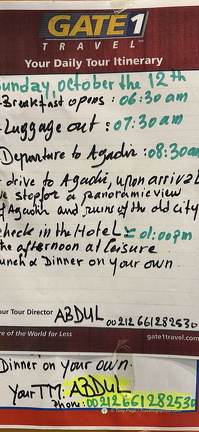 GATE 1
TRAVEL
Your Daily Tour Itinerary
Sunday, october the 12th
-Breakfast opens : 06:30 am
-Luggage out : 07:30am
Departure to Agadir :08:30am
drive to Agadir, upon arrival
we stop for a panoramic view
of Agadir and ruins of the old city
check in the Hotel ± 01:00pm
the afternoon at leisure
unch & Dinner on your own
our Tour Director ABDUL 00212661282530
re of the World for Less gate1travel.com
Dinner on your own.
Your TM: ABDUL
Phone: 00212661282530